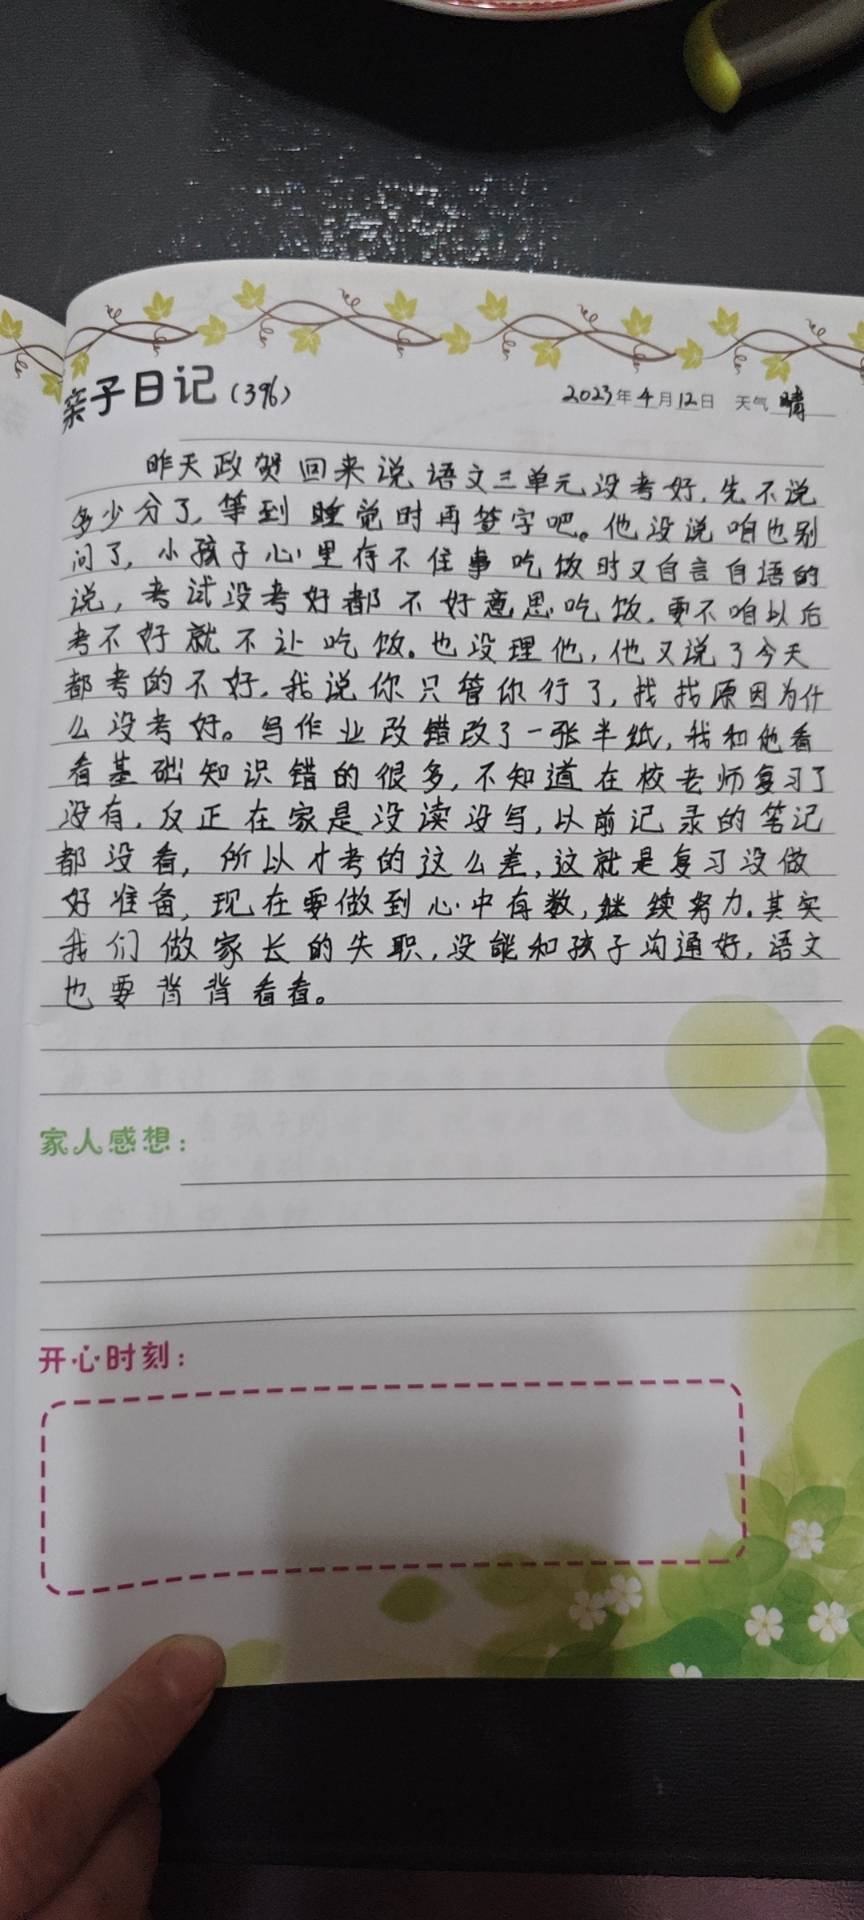 亲子日记（396） 2023年4月12日 天气 晴
昨天政贺回来说语文三单元没考好，先不说
多少分了，等到睡觉时再签字吧。他没说咱也别
问了，小孩子心里存不住事吃饭时又自言自语的
说，考试没考好都不好意思吃饭，要不咱以后
考不好就不让吃饭。也没理他，他又说了今天
都考的不好，我说你只管你行了，找找原因为什
么没考好。写作业改错改了一张半纸，我和他看
看基础知识错的很多，不知道在校老师复习了
没有，反正在家是没读没写，以前记录的笔记
都没看，所以才考的这么差，这就是复习没做
好准备，现在要做到心中有数，继续努力。其实
我们做家长的失职，没能和孩子沟通好，语文
也要背背看看。
家人感想：
开心时刻：